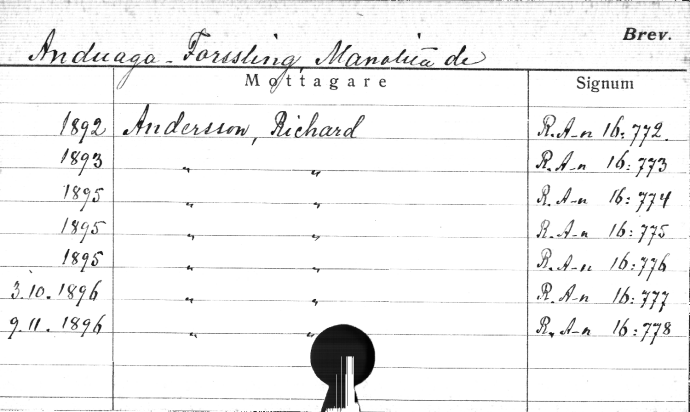 Brev.
Anduaga-Forssling, Manolita de
Mottagare Signum
1892 Andersson, Richard R. A-n 16:772.
1893 " " R. A-n 16:773
1895 " " R. A-n 16:774
1895 " " R. A-n 16:775
1895 " " R. A-n 16:776
3.10.1896 " " R. A-n 16:777
9.11.1896 " " R. A-n 16:778